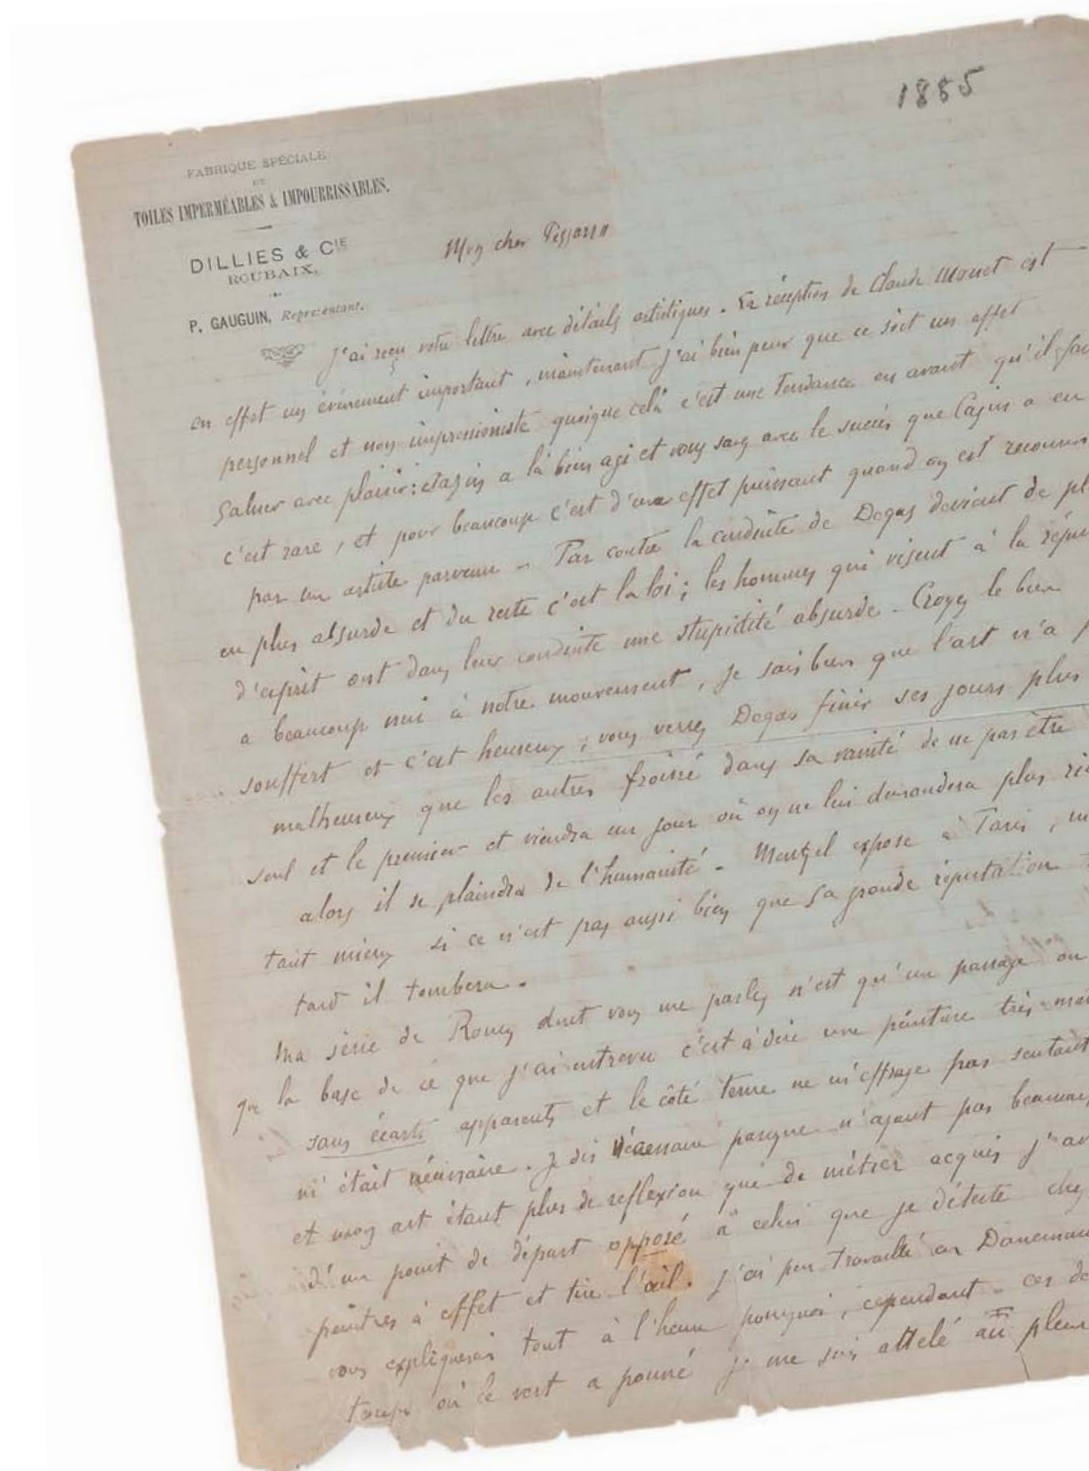 1885
FABRIQUE SPÉCIALE
DE
TOILES IMPERMÉABLES & IMPOURRISSABLES.
DILLIES & CIE
ROUBAIX.
P. GAUGUIN, Représentant.
Mon cher Pissarro
J'ai reçu votre lettre avec détails artistiques. La réception de Claude Monet est
en effet un événement important, maintenant j'ai bien peur que ce soit un effet
personnel et non impressioniste quoique celà c'est une tendance en avant qu'il fau
saluer avec plaisir: Cazin a là bien agi et vous savez avec le succès que Cazin a eu
c'est rare, et pour beaucoup c'est d'un effet puissant quand on est reconnu
par un artiste parvenu - Par contre la conduite de Degas devient de pl
en plus absurde et du reste c'est la loi; les hommes qui visent à la répu
d'esprit ont dans leur conduite une stupidité absurde - Croyez le bien
a beaucoup nui à notre mouvement, je sais bien que l'art n'a p
souffert et c'est heureux; vous verrez Degas finir ses jours plus
malheureux que les autres froissé dans sa vanité de ne pas être
seul et le premier et viendra un jour où on ne lui demandera plus rie
alors il se plaindra de l'humanité - Mentzel expose à Paris,
tant mieux si ce n'est pas aussi bien que sa grande réputation
tard il tombera.
Ma série de Rouen dont vous me parlez n'est qu'un passage ou
que la base de ce que j'ai entrevu c'est à dire une peinture très mat
sans écarts apparents et le côté terne ne m'effraye pas sentant
m'était nécessaire. Je dis nécessaire parceque n'ayant pas beaucoup
et mon art étant plus de reflexion que de métier acquis j'av
d'un point de départ opposé à celui que je déteste chez
peintres à effet et tire l'œil. J'ai peu travaillé en Danemark
vous expliquerai tout à l'heure pourquoi, cependant ces de
temps où le vert a poussé je me suis attelé au plein